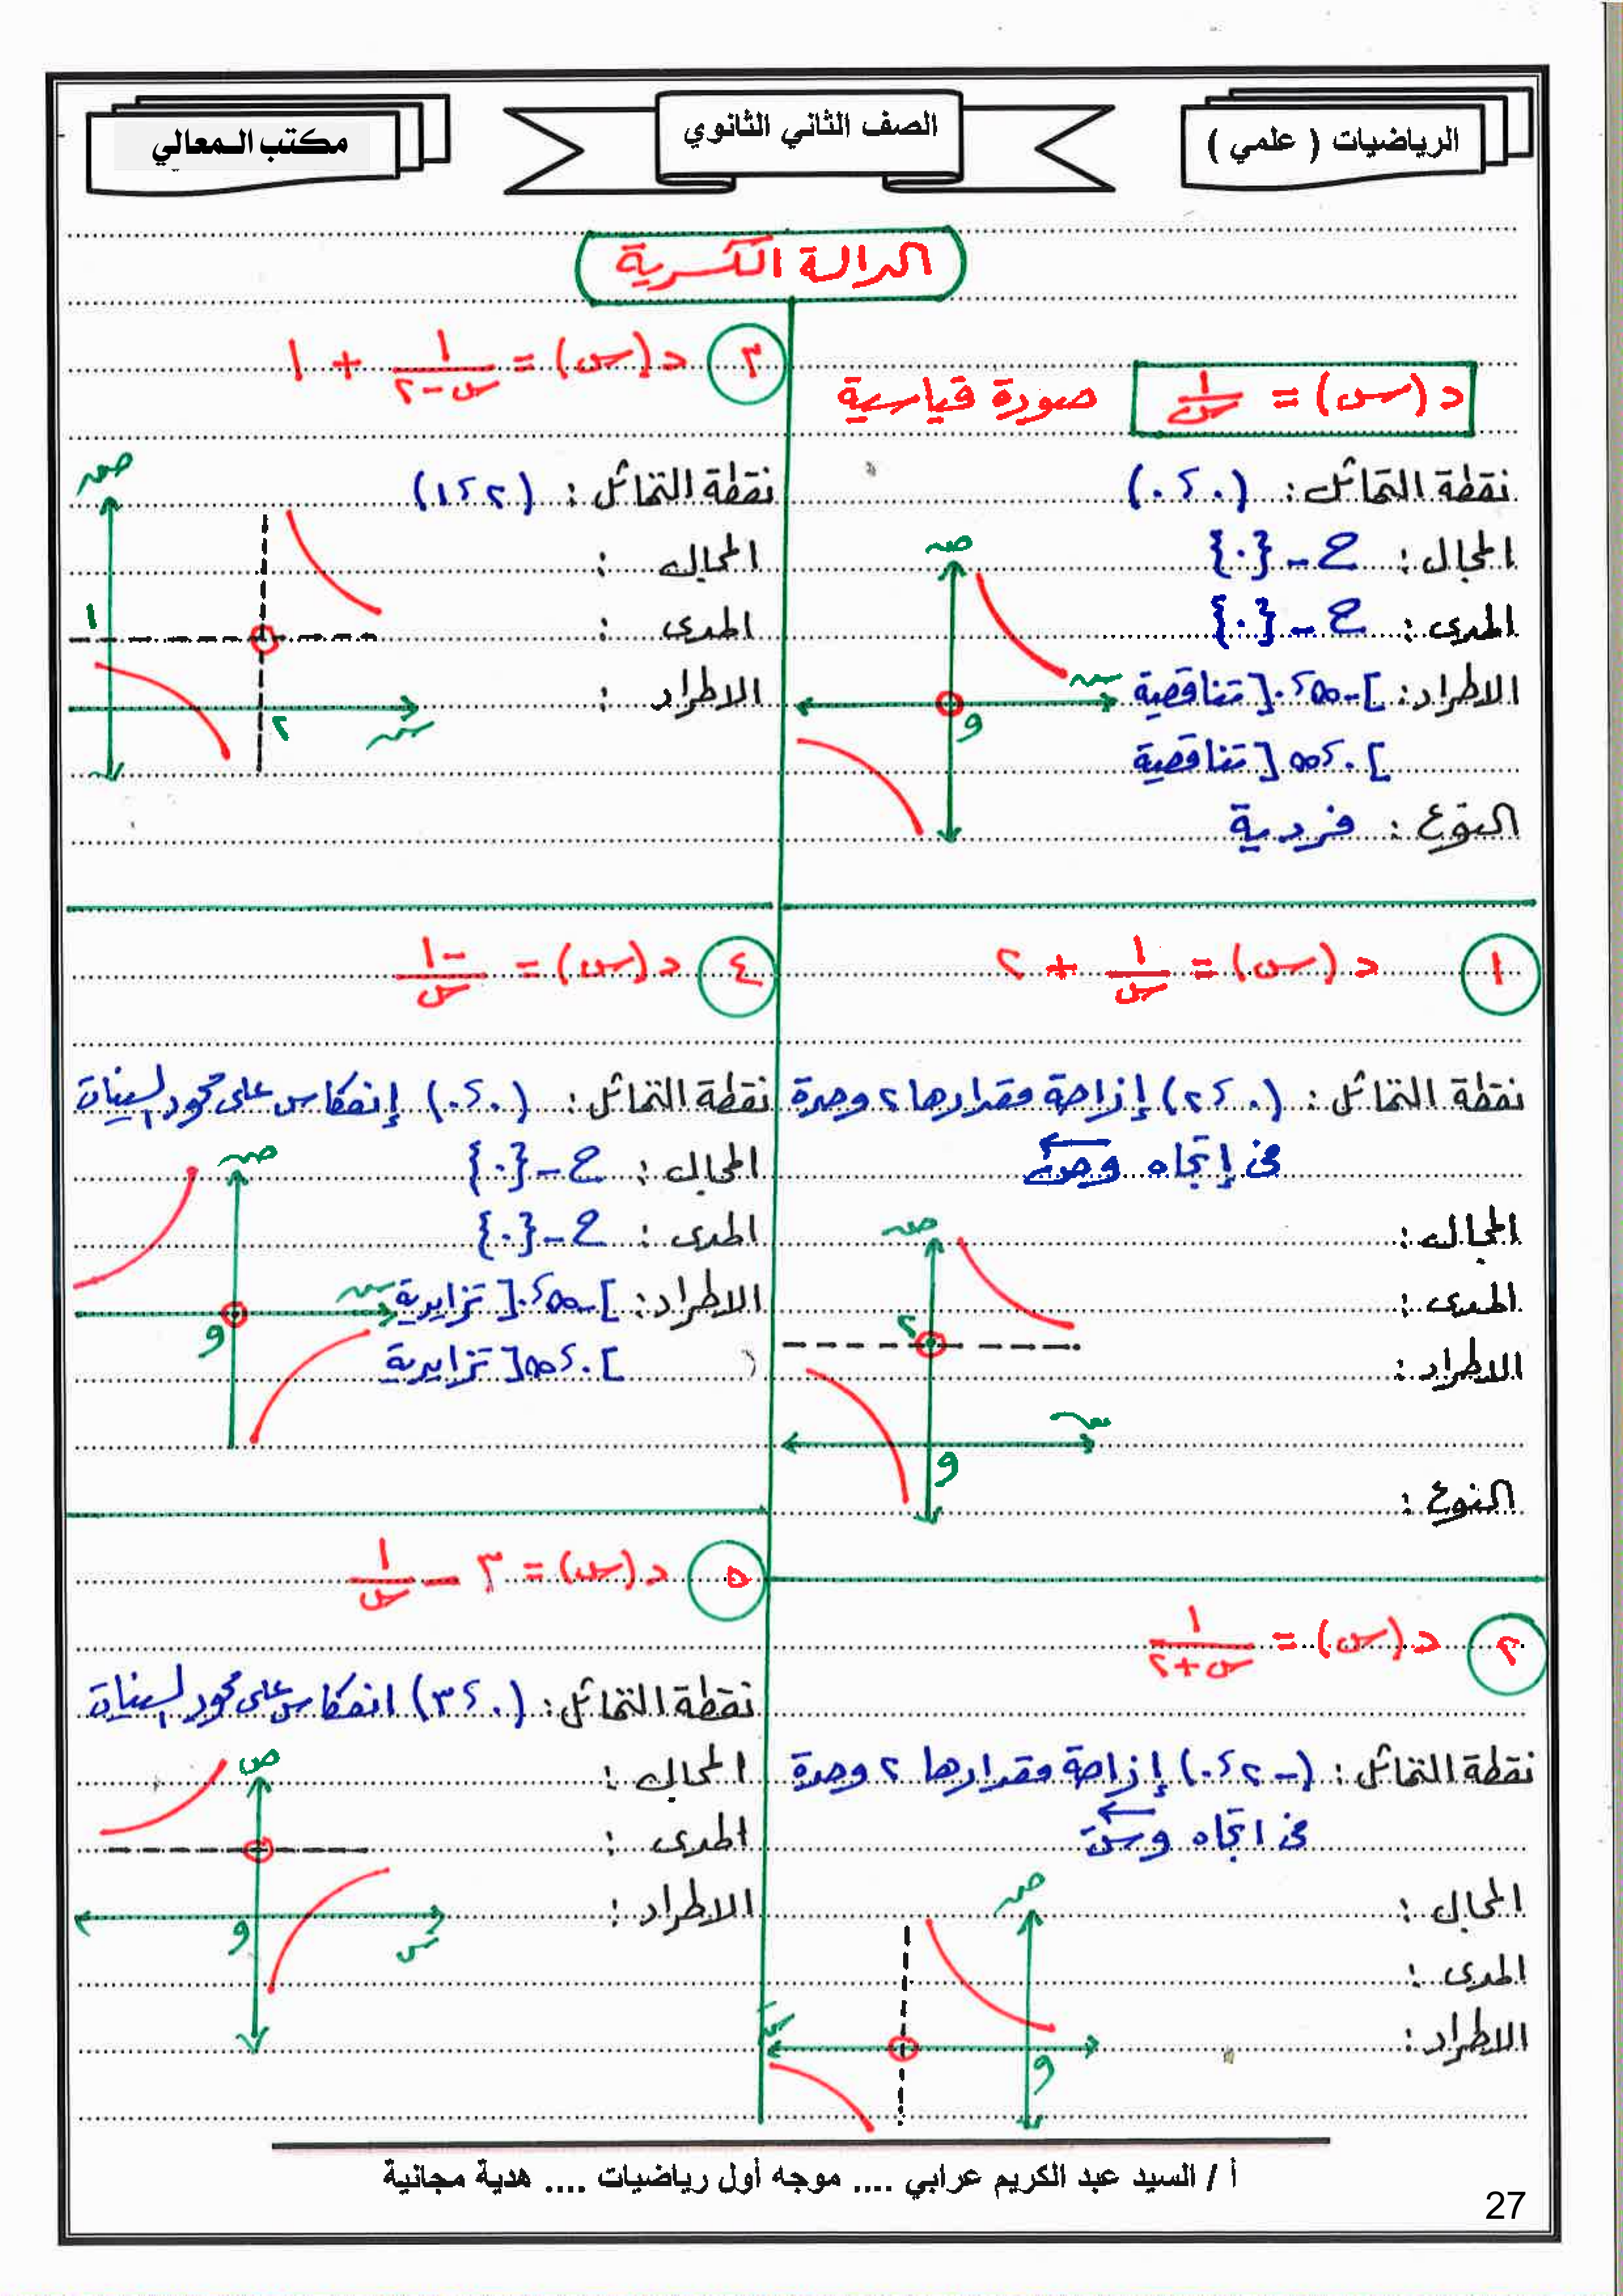 الرياضيات ( علمي )
الصف الثاني الثانوي
مكتب المعالي
الدالة الكسرية
د(س) = ١/س صورة قياسية
نقطة التماثل : (٠ ، ٠)
المجال : ح - {٠}
المدى : ح - {٠}
الاطراد : ]-∞ ، ٠[ تناقصية
]٠ ، ∞[ تناقصية
النوع : فردية
صـ
سـ
و
١ د(س) = ١/س + ٢
نقطة التماثل : (٠ ، ٢) إزاحة مقدارها ٢ وحدة
فى إتجاه وصـ
المجال :
المدى :
الاطراد :
النوع :
صـ
٢
و
٢ د(س) = ١/س+٢
نقطة التماثل : (-٢ ، ٠) إزاحة مقدارها ٢ وحدة
فى اتجاه وسَ
المجال :
المدى :
الاطراد :
ص
و
٣ د(س) = ١/س-٢ + ١
نقطة التماثل : (٢ ، ١)
المجال :
المدى :
الاطراد :
صـ
١
٢
سـ
٤ د(س) = -١/س
نقطة التماثل : (٠ ، ٠) إنعكاس على محور السينات
المجال : ح - {٠}
المدى : ح - {٠}
الاطراد : ]-∞ ، ٠[ تزايدية
]٠ ، ∞[ تزايدية
صـ
سـ
و
٥ د(س) = ٣ - ١/س
نقطة التماثل : (٠ ، ٣) انعكاس على محور السينات
المجال :
المدى :
الاطراد :
ص
و
س
أ / السيد عبد الكريم عرابي .... موجه أول رياضيات .... هدية مجانية
27